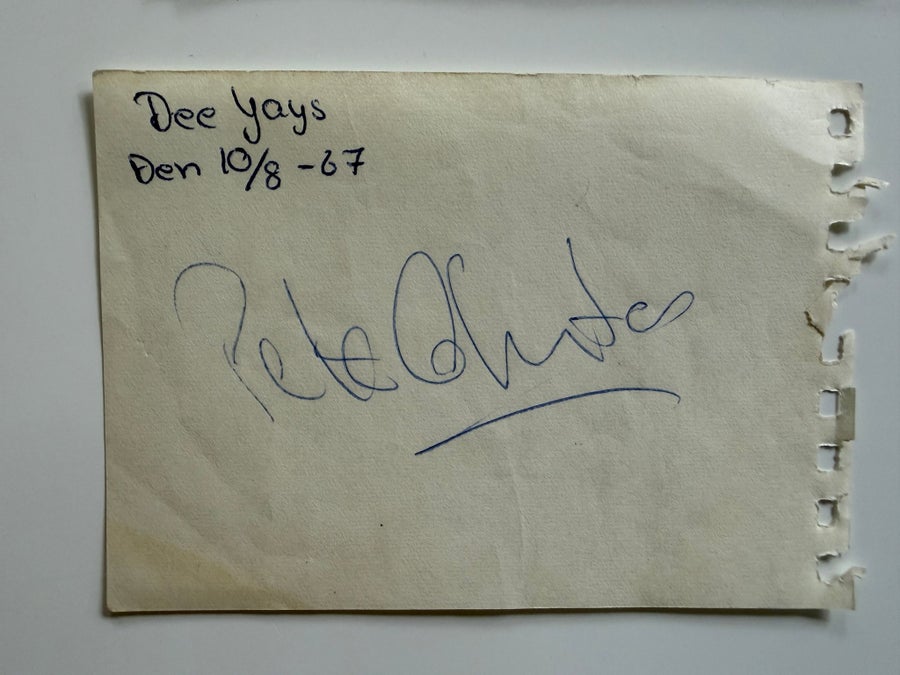 Dee Yays
Den 10/8 - 67
Pete